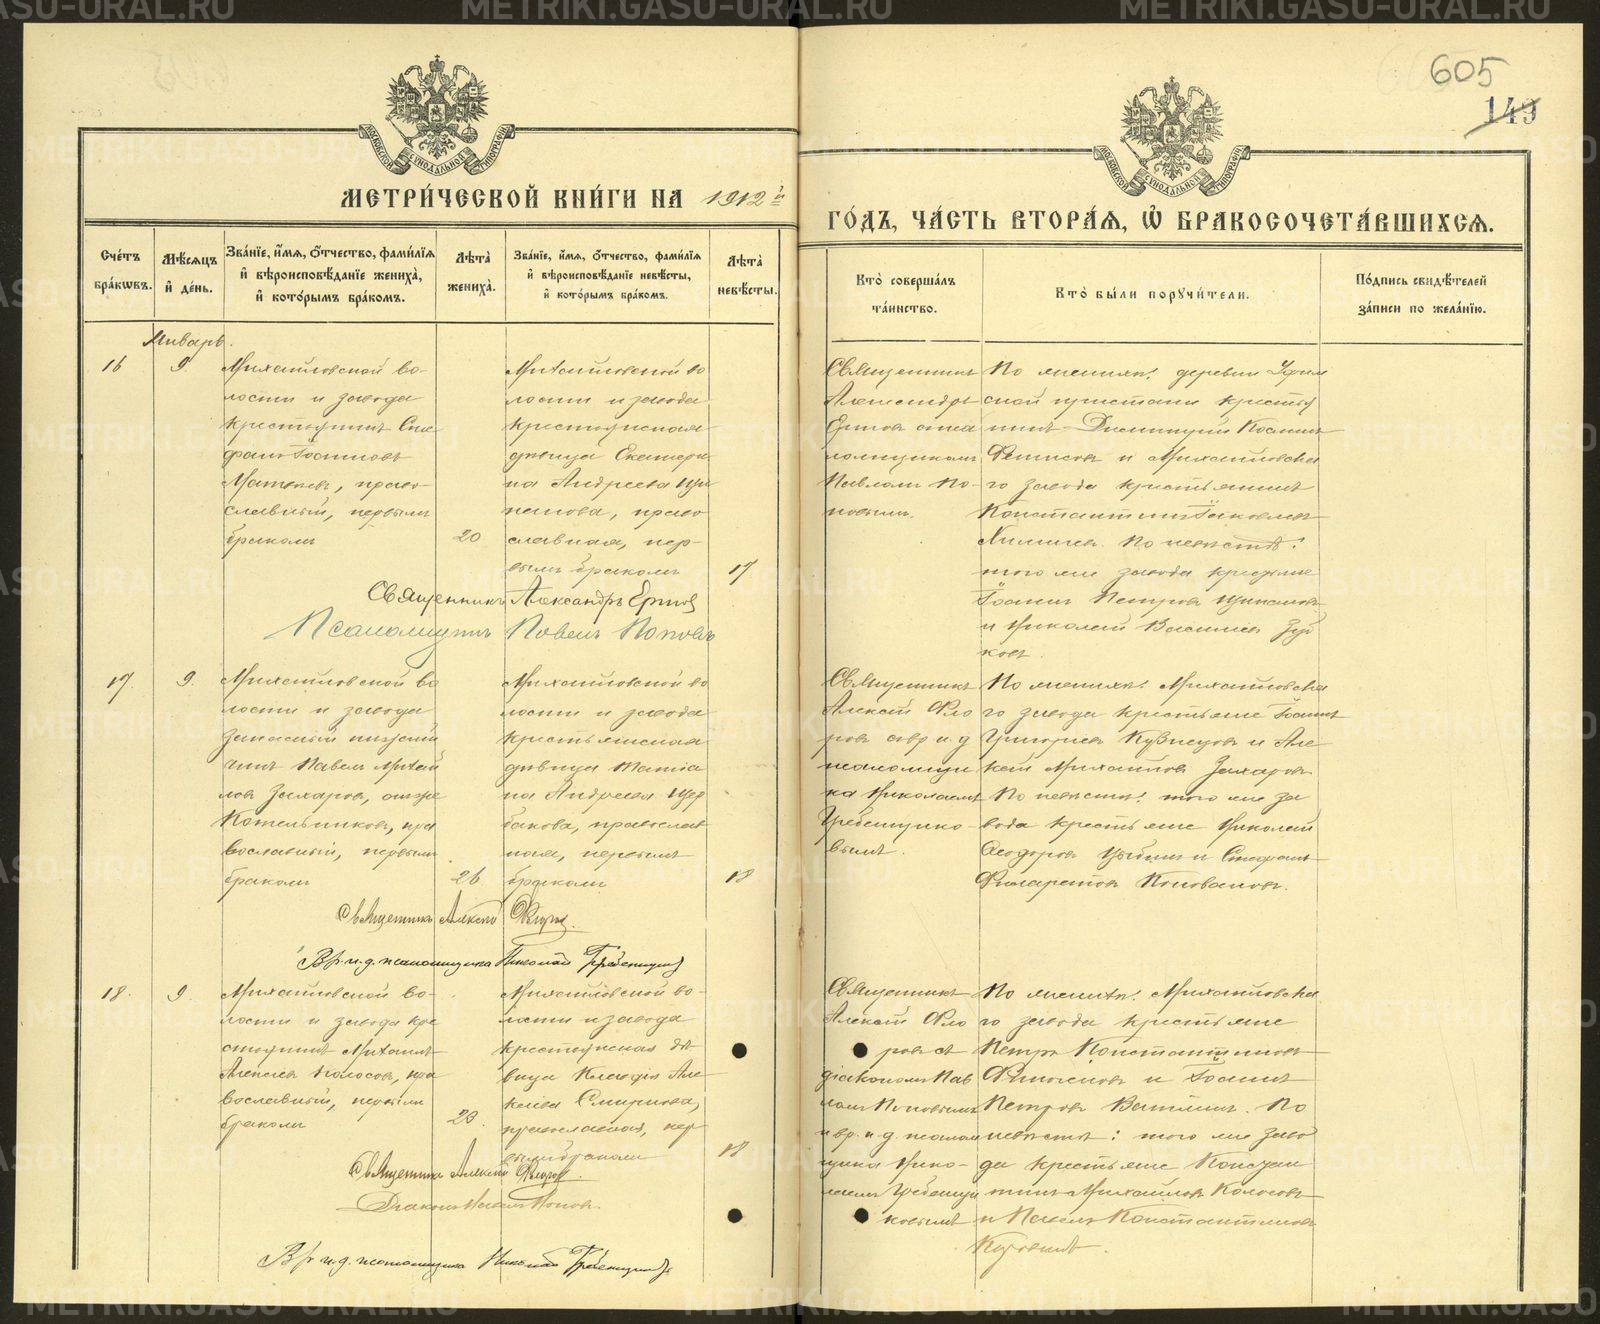 605
149
МЕТРИ́ЧЕСКОЙ КНИ́ГИ НА 1912 й
ГО́ДЪ, ЧА́СТЬ ВТОРА́Я, Ѡ БРАКОСОЧЕТА́ВШИХСЯ.
Сче́тъ бра́кѡвъ.
Мѣ́сяцъ и҆ де́нь.
Зва́нїе, и҆́мя, ѻ҆́тчество, фами́лїя и҆ вѣроисповѣ́данїе жениха̀, и҆ кото́рымъ бра́комъ.
Лѣ́та жениха̀.
Зва́нїе, и҆́мя, ѻ҆́тчество, фами́лїя и҆ вѣроисповѣ́данїе невѣ́сты, и҆ кото́рымъ бра́комъ.
Лѣ́та невѣ́сты.
Кто̀ соверша́лъ та́инство.
Кто̀ бы́ли поручи́тели.
По́дпись свидѣ́телей за́писи по жела́нїю.
Январь.
16
9.
Михайловской во-
лости и завода
крестьянинъ Сте
фанъ Іоанновъ
православный, первымъ
бракомъ
20
Михайловской во
лости и завода
крестьянская
дѣвица Екатери
на Андреева
право
славная, пер-
вымъ бракомъ
17
Священникъ
Александръ
Ергов
псаломщикомъ
Павломъ По-
повымъ.
По женихѣ: деревни Уфим
ской пристани крестья
нинъ Димитрій
и Михайловска
го завода крестьянинъ
Константинъ Іаковлевъ
По невѣстѣ:
того же завода крестьяне
Іоаннъ Петровъ
и Николай Васильевъ Зуй
ковъ.
Священникъ Александръ Ергов
Псаломщикъ Павелъ Поповъ
17.
9.
Михайловской во
лости и завода
запасный
Павелъ Михай
ловъ Захаровъ, онъ же
Котельниковъ, пра
вославный, первымъ
бракомъ
26
Михайловской во
лости и завода
крестьянская
дѣвица Татіа
на Андреева Щер
бакова, православ
ная, первымъ
бракомъ
18
Священникъ
Алексѣй Фло
ровъ
псаломщи
ка Николаемъ
Гребенщико-
вымъ.
По женихѣ: Михайловска
го завода крестьяне Іоаннъ
Григорьевъ Кузнецовъ и Але
ксѣй Михайловъ Захаровъ
По невѣстѣ: того же за
вода крестьяне Николай
Ѳеодоровъ и Стефанъ
Филаретовъ Коноваловъ.
Священникъ Алексѣй Флоров.
Вр. и. д. псаломщика Николай Гребенщиков
18.
9.
Михайловской во-
лости и завода кре
стьянинъ Михаилъ
Алексѣевъ Колосовъ, пра
вославный, первымъ
бракомъ
23.
Михайловской во-
лости и завода
крестьянская дѣ
вица Клавдія Але
ксѣева Смирнова,
православная, пер
вымъ бракомъ
18
Священникъ
Алексѣй Фло
ровъ съ
діакономъ Пав
ломъ Поповымъ
и вр. и. д. псалом
щика Нико-
лаемъ Гребенщи
ковымъ
По женихѣ: Михайловска
го завода крестьяне
Петръ Константиновъ
и Іоаннъ
Петровъ По
невѣстѣ: того же заво
да крестьяне Констан
тинъ Михайловъ Колосовъ
и Павелъ Константиновъ
Священникъ Алексѣй Флоров.
Діаконъ Павелъ Поповъ.
Вр. и. д. псаломщика Николай Гребенщиков
METRIKI.GASU-URAL.RU